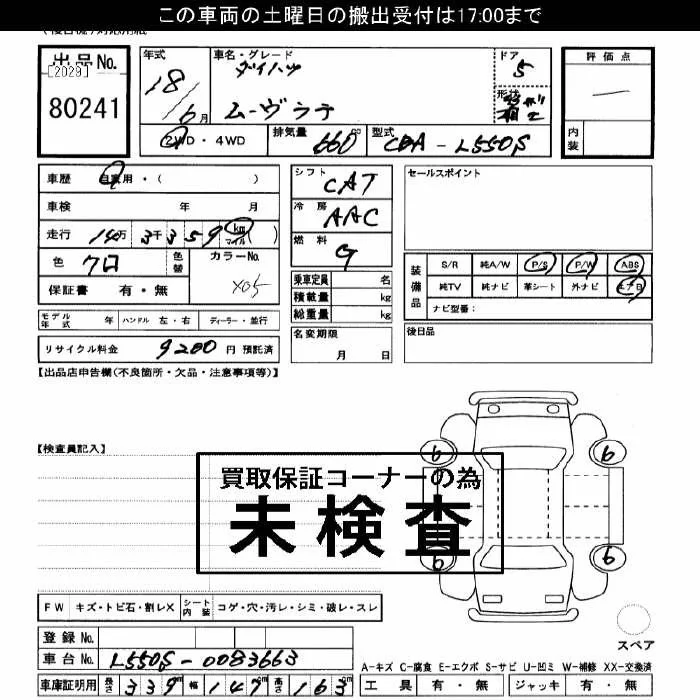 この車両の土曜日の搬出受付は17:00まで
出品No.
[2029]
80241
年式
18/6月
車名・グレード
ダイハツ
ムーヴラテ
ドア
5
形状
評価点
内装
2WD・4WD
排気量 660cc
型式 CBA-L550S
車歴 自家用・( )
車検 年 月
走行 14万3千359 km マイル( )
色 クロ
色替
カラーNo.
X05
保証書 有・無
シフト CAT
冷房 AAC
燃料 G
乗車定員 名
積載量 kg
総重量 kg
名変期限
月 日
セールスポイント
装備品
S/R 純A/W P/S P/W ABS
純TV 純ナビ 革シート 外ナビ エアB
ナビ型番:
後日品
モデル年式 年 ハンドル 左・右 ディーラー・並行
リサイクル料金 9200 円 預託済
【出品店申告欄(不良箇所・欠品・注意事項等)】
【検査員記入】
6
6
6
6
買取保証コーナーの為
未検査
FW キズ・トビ石・割レX
シート内装 コゲ・穴・汚レ・シミ・破レ・スレ
登録No.
車台No. L550S-0083663
車庫証明用 長さ 339cm 幅 147cm 高さ 163cm
スペア
A-キズ C-腐食 E-エクボ S-サビ U-凹ミ W-補修 XX-交換済
工具 有・無 ジャッキ 有・無